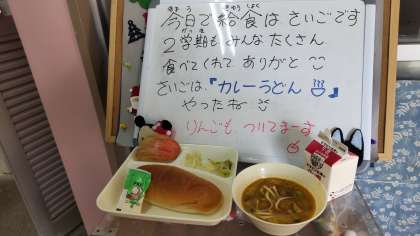 今日で給食はさいごです
2学期もみんなたくさん
食べてくれて ありがと
さいごは、『カレーうどん』
やったね
りんごも ついてまーす